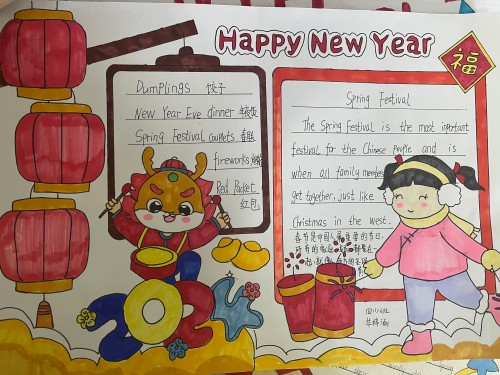 Happy New Year
福
Dumplings 饺子
New Year Eve dinner 年夜饭
Spring Festival couplets 春联
fireworks
Red Packet
红包
2024
Spring Festival
The Spring Festival is the most important
festival for the Chinese people and is
when all family members
get together, just like
Christmas in the west.
春节是中国人最重要的节日,
四(1)班